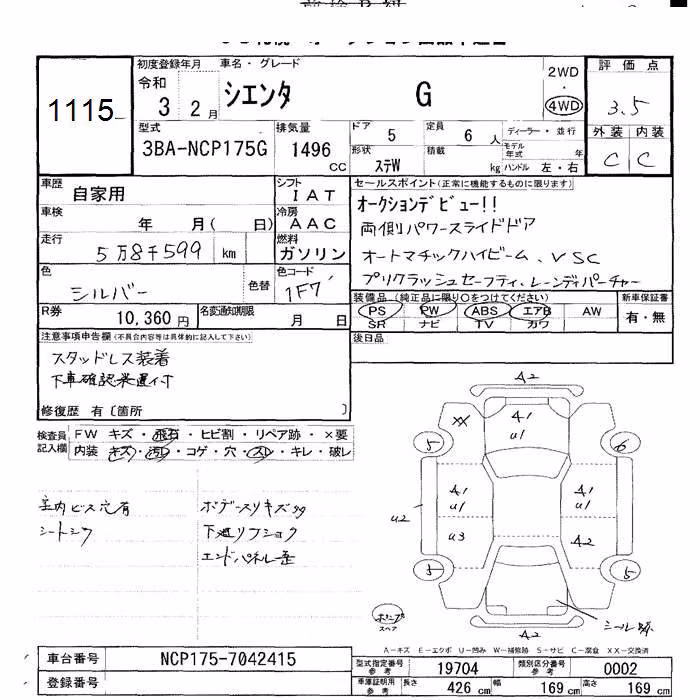 初度登録年月 車名・グレード 2WD 評価点
令和 3 2月 シエンタ G 4WD 3.5
1115
型式 排気量 ドア 定員 ディーラー・並行 外装 内装
3BA-NCP175G 1496 CC 5 6人 モデル年式 年 C C
形状 ステW 積載 kg ハンドル 左・右
車歴 自家用 シフト IAT セールスポイント(正常に機能するものに限ります)
車検 年 月( 日) 冷房 AAC オークションデビュー!!
両側パワースライドドア
走行 5万8千599 km 燃料 ガソリン オートマチックハイビーム、VSC
色 シルバー 色替 色コード 1F7 プリクラッシュセーフティ、レーンディパーチャー
装備品(純正品に限り○をつけてください) 新車保証書
R券 10,360円 名変通知期限 月 日 PS PW ABS エアB AW 有・無
SR ナビ TV カワ
注意事項申告欄(不具合内容等は具体的に記入して下さい) 後日品
スタッドレス装着
下車確認装置付
修復歴 有〔箇所 〕
検査員記入欄 FW キズ・飛石・ヒビ割・リペア跡・×要
内装 キズ・汚れ・コゲ・穴・スレ・キレ・破レ
室内ビス穴有 ボデースリキズ多
シートシワ 下廻りフショク
エンドパネル歪
A2
XX A1 U1
5 6
A1 U1 A1 U1
U2 U3 A2
5 5
シール跡
A2
スペア
A-キズ E-エクボ U-凹み W-補修跡 S-サビ C-腐食 XX-交換済
車台番号 NCP175-7042415 型式指定番号 参考 19704 類別区分番号 参考 0002
登録番号 車庫証明用 参考 長さ 426 cm 幅 169 cm 高さ 169 cm